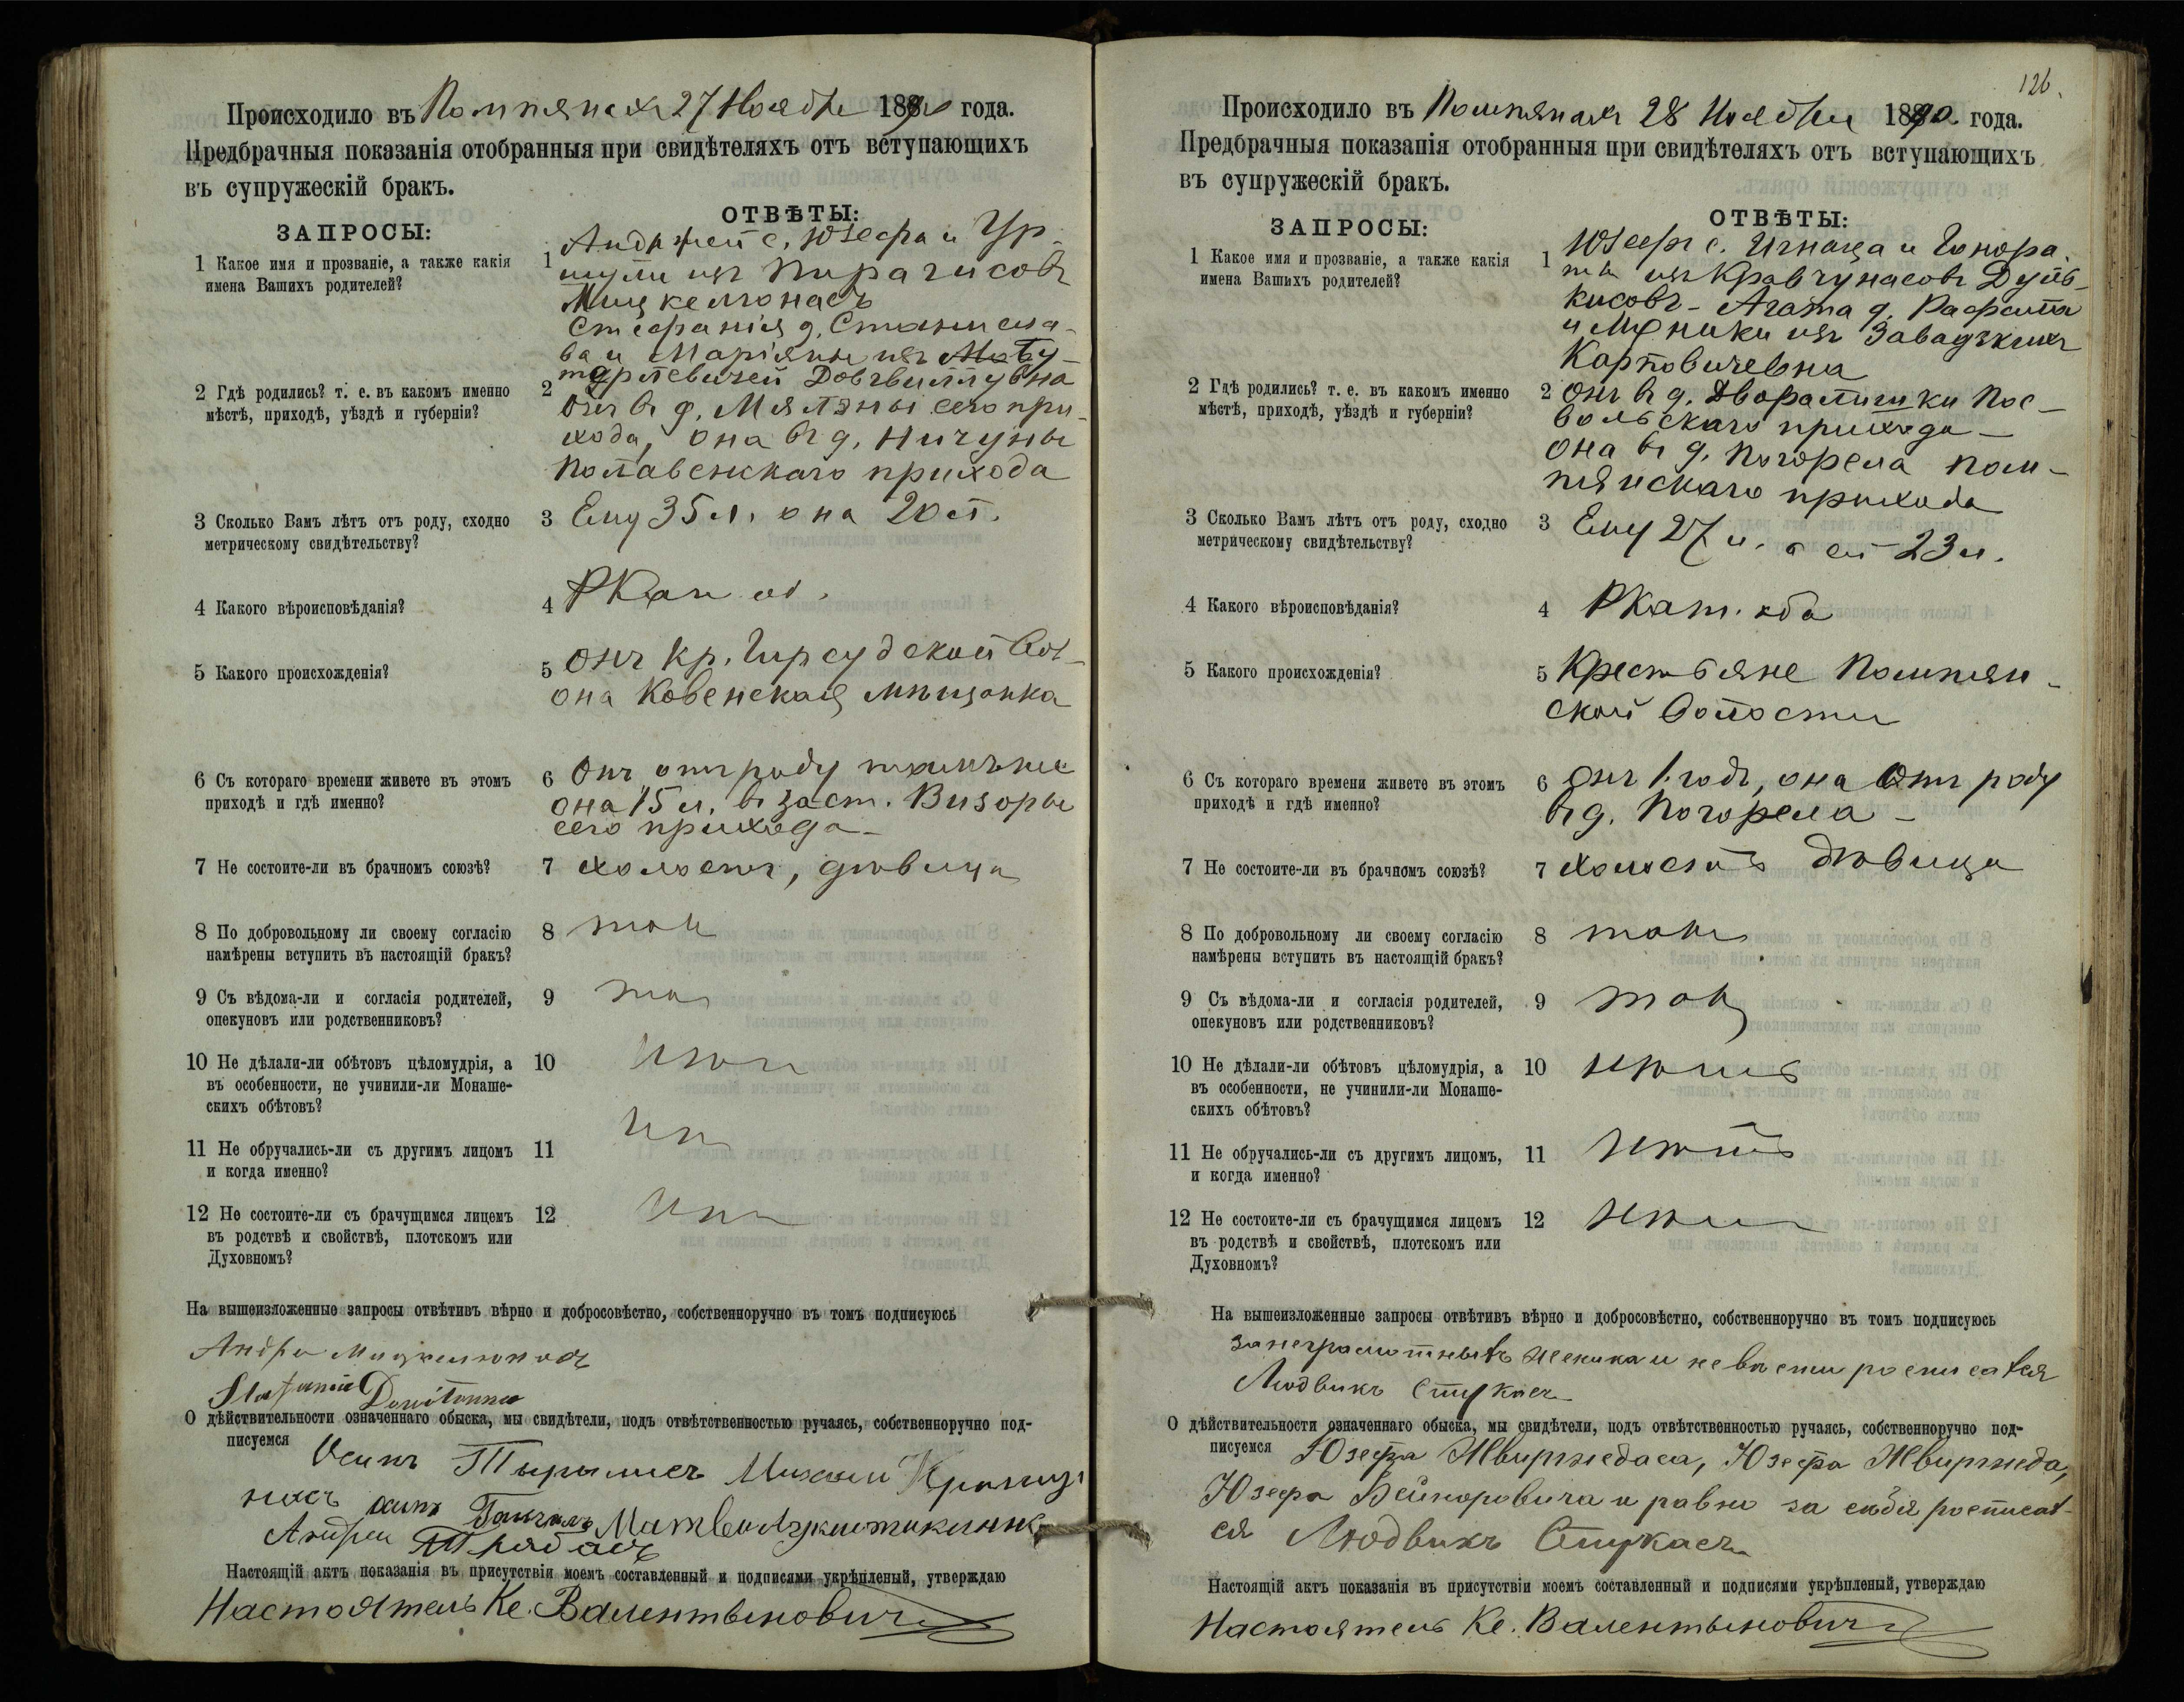 Происходило въ Помпянахъ 27 Ноября 1890 года.
Предбрачныя показанія отобранныя при свидѣтеляхъ отъ вступающихъ
въ супружескій бракъ.
ЗАПРОСЫ:
ОТВѢТЫ:
1 Какое имя и прозваніе, а также какія
имена Вашихъ родителей?
1 Андржей с. Юзефа и Ур-
шули изъ Пирагисовъ
Мицкелюнасъ
Стефанія д. Станисла-
ва и Маріяны изъ
Довгвиллувна
2 Гдѣ родились? т. е. въ какомъ именно
мѣстѣ, приходѣ, уѣздѣ и губерніи?
2 Онъ въ д. сего при-
хода, она въ д. Ничуны
прихода
3 Сколько Вамъ лѣтъ отъ роду, сходно
метрическому свидѣтельству?
3 Ему 35 л. она 20 л.
4 Какого вѣроисповѣданія?
4 РКат.
5 Какого происхожденія?
5 Онъ кр. Гирсудской Вол-
она Ковенская мѣщанка
6 Съ котораго времени живете въ этомъ
приходѣ и гдѣ именно?
6 Онъ отъ роду тамъ же
она 15 л. въ заст. Визоры
сего прихода-
7 Не состоите-ли въ брачномъ союзѣ?
7 холостъ, дѣвица
8 По добровольному ли своему согласію
намѣрены вступить въ настоящій бракъ?
8 такъ
9 Съ вѣдома-ли и согласія родителей,
опекуновъ или родственниковъ?
9 такъ
10 Не дѣлали-ли обѣтовъ цѣломудрія, а
въ особенности, не учинили-ли Монаше-
скихъ обѣтовъ?
10 нѣтъ
11 Не обручались-ли съ другимъ лицомъ
и когда именно?
11 нѣтъ
12 Не состоите-ли съ брачущимся лицемъ
въ родствѣ и свойствѣ, плотскомъ или
Духовномъ?
12 нѣтъ
На вышеизложенные запросы отвѣтивъ вѣрно и добросовѣстно, собственноручно въ томъ подписуюсь
Андре Мицкелюнасъ
О дѣйствительности означеннаго обыска, мы свидѣтели, подъ отвѣтственностью ручаясь, собственноручно под-
писуемся
Осипъ
Настоящій актъ показанія въ присутствіи моемъ составленный и подписями укрѣпленый, утверждаю
Настоятель Кс. Валентыновичъ
126.
Происходило въ Помпянахъ 28 Ноября 1890. года.
Предбрачныя показанія отобранныя при свидѣтеляхъ отъ вступающихъ
въ супружескій бракъ.
ЗАПРОСЫ:
ОТВѢТЫ:
1 Какое имя и прозваніе, а также какія
имена Вашихъ родителей?
1 Юзефъ с. Игнаца и Гонора-
ты изъ Кравчунасовъ Дуль-
кисовъ - Агата д. Рафала
и Моники изъ Завадзкихъ
Карповичевна
2 Гдѣ родились? т. е. въ какомъ именно
мѣстѣ, приходѣ, уѣздѣ и губерніи?
2 Онъ въ д. Дворалишки Пос-
вольскаго прихода-
она въ д. Погорела Пом-
пянскаго прихода
3 Сколько Вамъ лѣтъ отъ роду, сходно
метрическому свидѣтельству?
3 Ему 27 л. а ей 23 л.
4 Какого вѣроисповѣданія?
4 РКат. оба
5 Какого происхожденія?
5 Крестьяне Помпян-
ской Волости
6 Съ котораго времени живете въ этомъ
приходѣ и гдѣ именно?
6 Онъ 1 годъ, она отъ роду
въ д. Погорела-
7 Не состоите-ли въ брачномъ союзѣ?
7 холостъ дѣвица
8 По добровольному ли своему согласію
намѣрены вступить въ настоящій бракъ?
8 такъ
9 Съ вѣдома-ли и согласія родителей,
опекуновъ или родственниковъ?
9 такъ
10 Не дѣлали-ли обѣтовъ цѣломудрія, а
въ особенности, не учинили-ли Монаше-
скихъ обѣтовъ?
10 нѣтъ
11 Не обручались-ли съ другимъ лицомъ,
и когда именно?
11 нѣтъ
12 Не состоите-ли съ брачущимся лицемъ
въ родствѣ и свойствѣ, плотскомъ или
Духовномъ?
12 нѣтъ
На вышеизложенные запросы отвѣтивъ вѣрно и добросовѣстно, собственноручно въ томъ подписуюсь
За неграмотныхъ жениха и невѣсти росписался
Людвикъ Стукасъ
О дѣйствительности означеннаго обыска, мы свидѣтели, подъ отвѣтственностью ручаясь, собственноручно под-
писуемся Юзефа Жвирждаса, Юзефа Жвиржда,
Юзефа Бейноровича и равно за себя росписал-
ся Людвикъ Стукасъ
Настоящій актъ показанія въ присутствіи моемъ составленный и подписями укрѣпленый, утверждаю
Настоятель Кс. Валентыновичъ